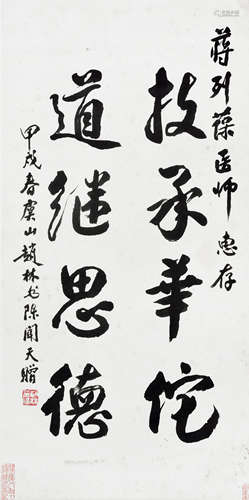 蒋列葆医师惠存
技承華佗
道继思德
甲戌春虞山趙林
陈闻天赠